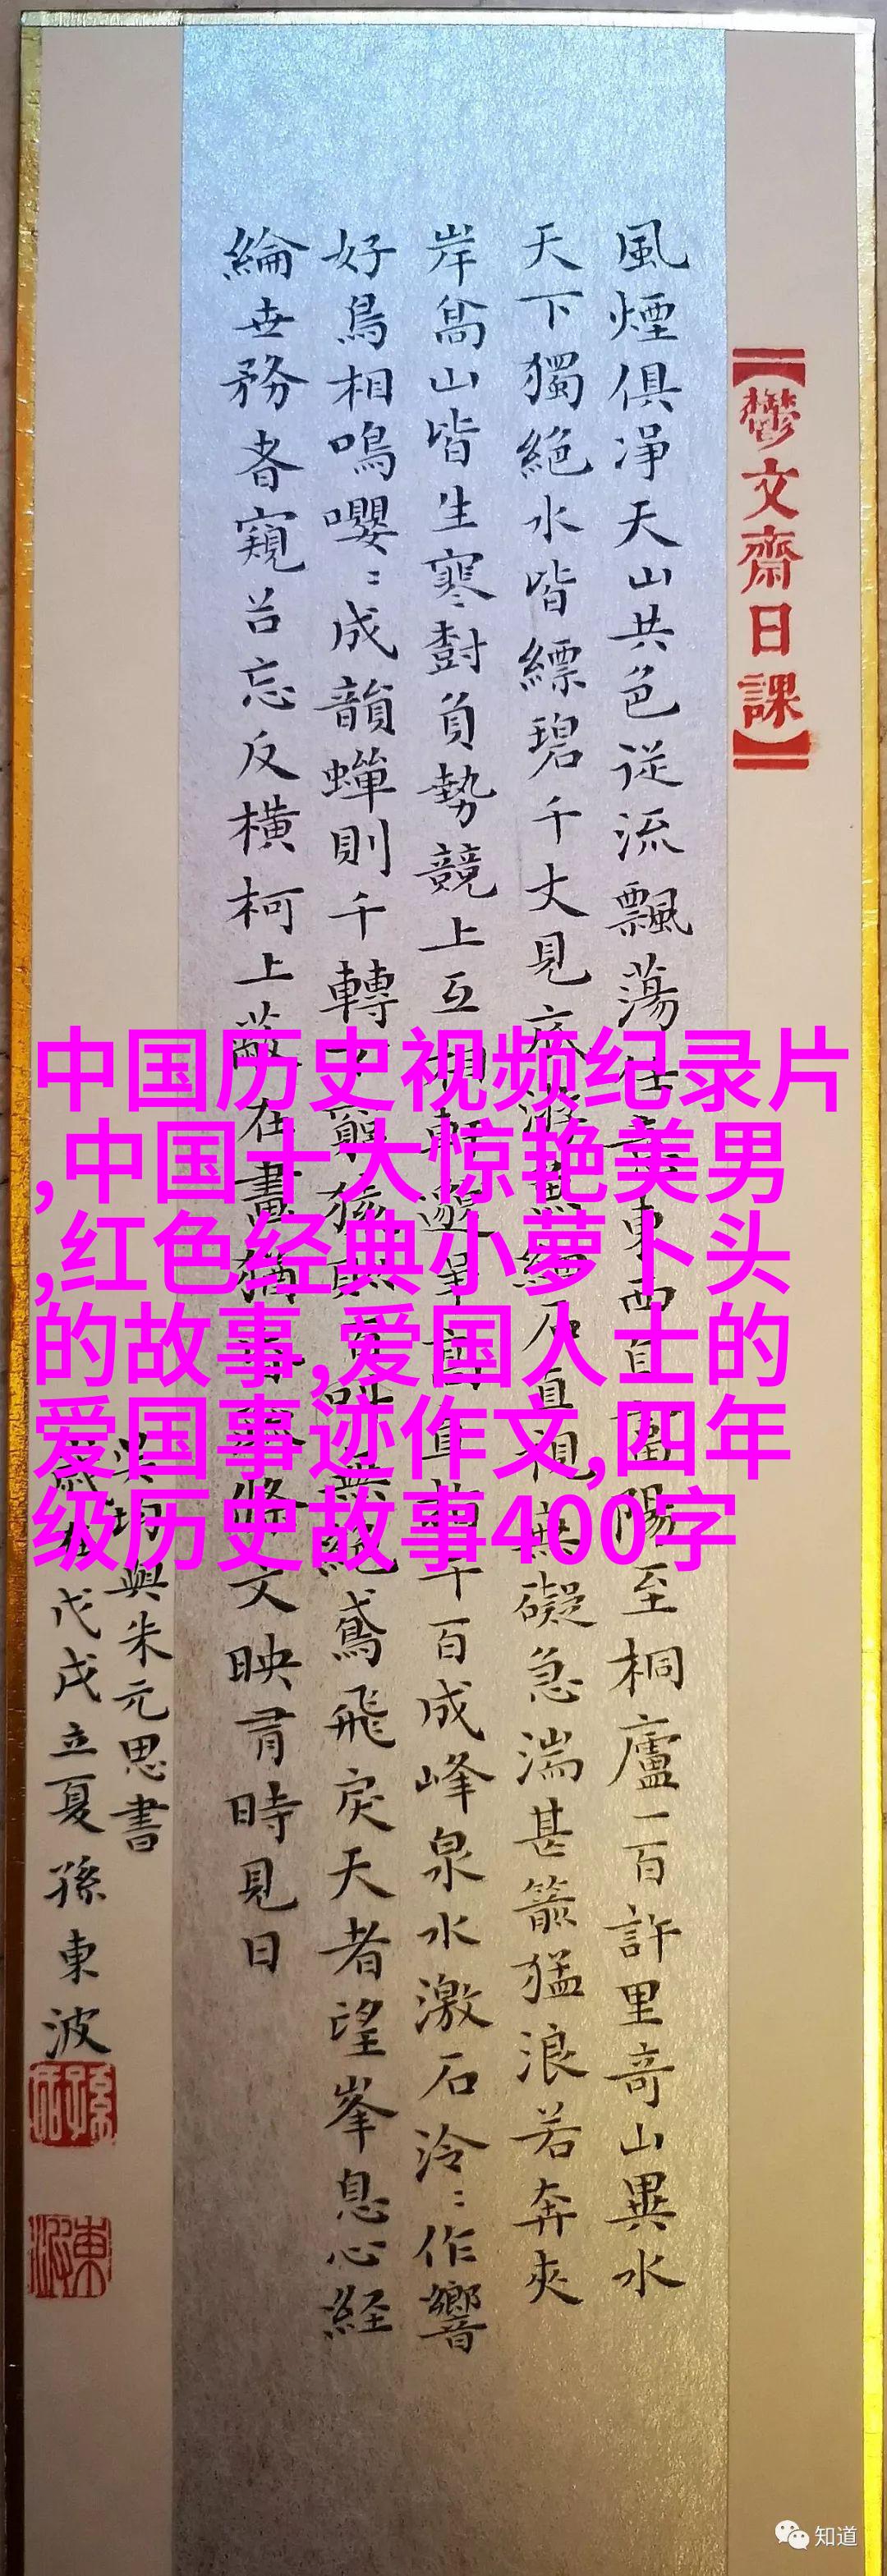 【鬱文齋日課】
風煙俱淨天山共色從流飄蕩任意東西自富陽至桐廬一百許里奇山異水
天下獨絕水皆縹碧千丈見底游魚細石直視無礙急湍甚箭猛浪若奔夾
岸高山皆生寒樹負勢競上互相軒邈爭高直指千百成峰泉水激石泠〻作響
好鳥相鳴嚶〻成韻蟬則千轉不窮猿則百叫無絕鳶飛戾天者望峯息心経
綸世務者窺谷忘反橫柯上蔽在晝猶昏疏條交映有時見日
吳均與朱元思書
歲在戊戌立夏孫東波
中国历史视频纪录片
,中国十大惊艳美男
,红色经典小萝卜头
的故事,爱国人士的
爱国事迹作文,四年
级历史故事400字
知道